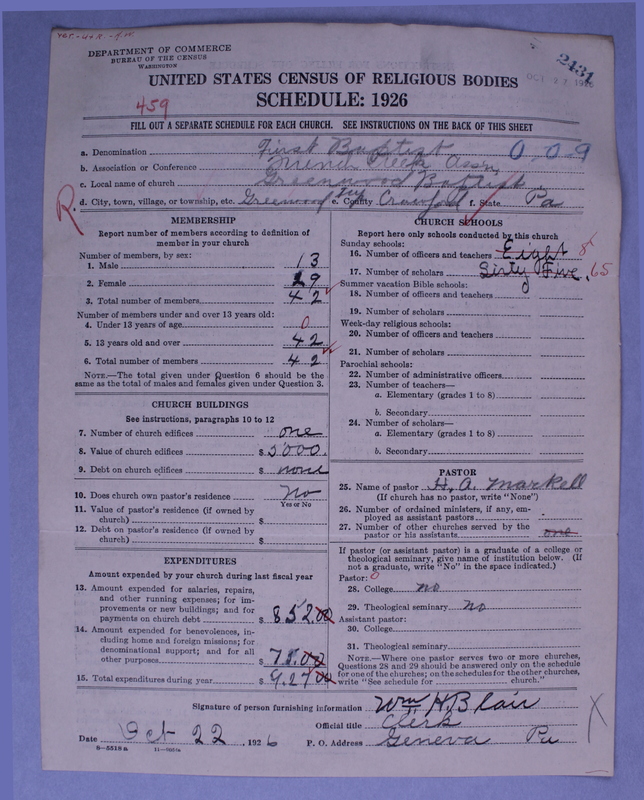 DEPARTMENT OF COMMERCE
BUREAU OF THE CENSUS
WASHINGTON
2431
UNITED STATES CENSUS OF RELIGIOUS BODIES
459
SCHEDULE: 1926
FILL OUT A SEPARATE SCHEDULE FOR EACH CHURCH. SEE INSTRUCTIONS ON THE BACK OF THIS SHEET
a. Denomination First Baptist 0 0-9
b. Association or Conference French Creek Assn,
c. Local name of church Greenwood Baptist
R. d. City, town, village, or township, etc. Greenwood e. County Crawford f. State Pa
MEMBERSHIP
Report number of members according to definition of member in your church
Number of members, by sex:
1. Male 13
2. Female 29
3. Total number of members 42
Number of members under and over 13 years old:
4. Under 13 years of age 0
5. 13 years old and over 42
6. Total number of members 42
NOTE.—The total given under Question 6 should be the
same as the total of males and females given under Question 3.
CHURCH BUILDINGS
See instructions, paragraphs 10 to 12
7. Number of church edifices one
8. Value of church edifices $5000.
9. Debt on church edifices $ none
10. Does church own pastor's residence No
Yes or No
11. Value of pastor's residence (if owned by
church) $
12. Debt on pastor's residence (if owned by
church) $
EXPENDITURES
Amount expended by your church during last fiscal year
13. Amount expended for salaries, repairs,
and other running expenses; for im-
provements or new buildings; and for
payments on church debt $852.00
14. Amount expended for benevolences, in-
cluding home and foreign missions; for
denominational support; and for all
other purposes $75.00
15. Total expenditures during year $927.00
CHURCH SCHOOLS
Report here only schools conducted by this church
Sunday schools:
16. Number of officers and teachers Eight 8
17. Number of scholars Sixty Five. 65
Summer vacation Bible schools:
18. Number of officers and teachers
19. Number of scholars
Week-day religious schools:
20. Number of officers and teachers
21. Number of scholars
Parochial schools:
22. Number of administrative officers
23. Number of teachers—
a. Elementary (grades 1 to 8)
b. Secondary
24. Number of scholars—
a. Elementary (grades 1 to 8)
b. Secondary
PASTOR
25. Name of pastor H. A. Markell
(If church has no pastor, write "None")
26. Number of ordained ministers, if any, em-
ployed as assistant pastors
27. Number of other churches served by the
pastor or his assistants one
If pastor (or assistant pastor) is a graduate of a college or
theological seminary, give name of institution below. (If
not a graduate, write "No" in the space indicated.)
Pastor: 0
28. College no
29. Theological seminary no
Assistant pastor:
30. College
31. Theological seminary
NOTE.—Where one pastor serves two or more churches,
Questions 28 and 29 should be answered only on the schedule
for one of the churches; on the schedules for the other churches,
write "See schedule for church."
Signature of person furnishing information Wm H. Blair
Official title Clerk
Date Oct 22, 1926 P. O. Address Geneva Pa
8-5518a